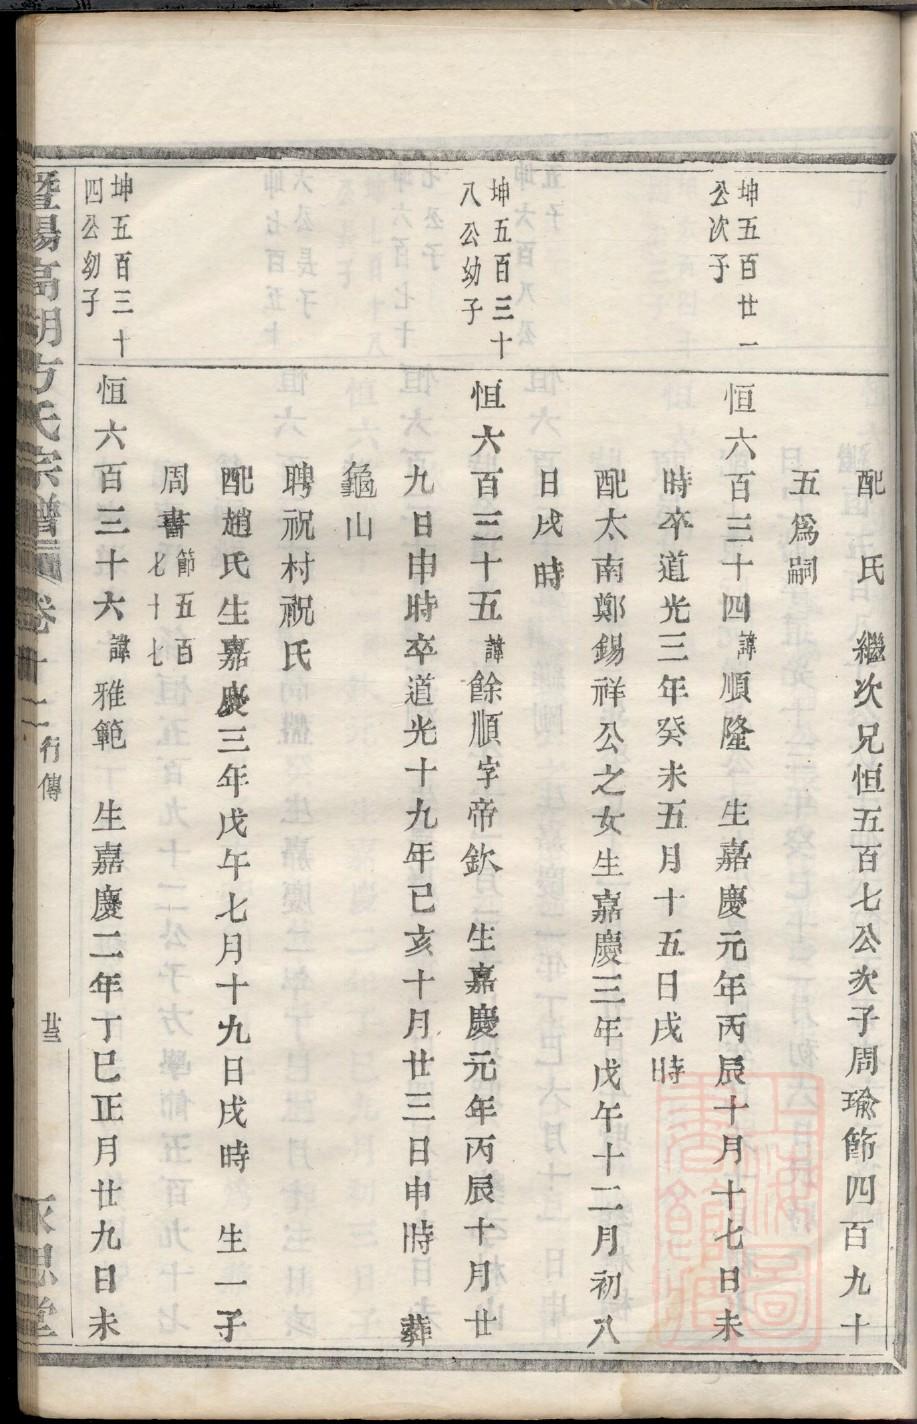 配　氏　繼次兄恒五百七公次子周瑜節四百九十
五爲嗣
坤五百廿一
公次子
恒六百三十四諱順隆　生嘉慶元年丙辰十月十七日未
時卒道光三年癸未五月十五日戌時
配太南鄭錫祥公之女生嘉慶三年戊午十二月初八
日戌時
坤五百三十
八公幼子
恒六百三十五諱餘順字帝欽　生嘉慶元年丙辰十月廿
九日申時卒道光十九年己亥十月廿三日申時　葬
龜山
聘祝村祝氏
配趙氏生嘉慶三年戊午七月十九日戌時　生一子
周書節五百七十七
坤五百三十
四公幼子
恒六百三十六諱雅範　生嘉慶二年丁巳正月廿九日未
暨陽高湖方氏宗譜　卷十二　行傳　廿三　永思堂